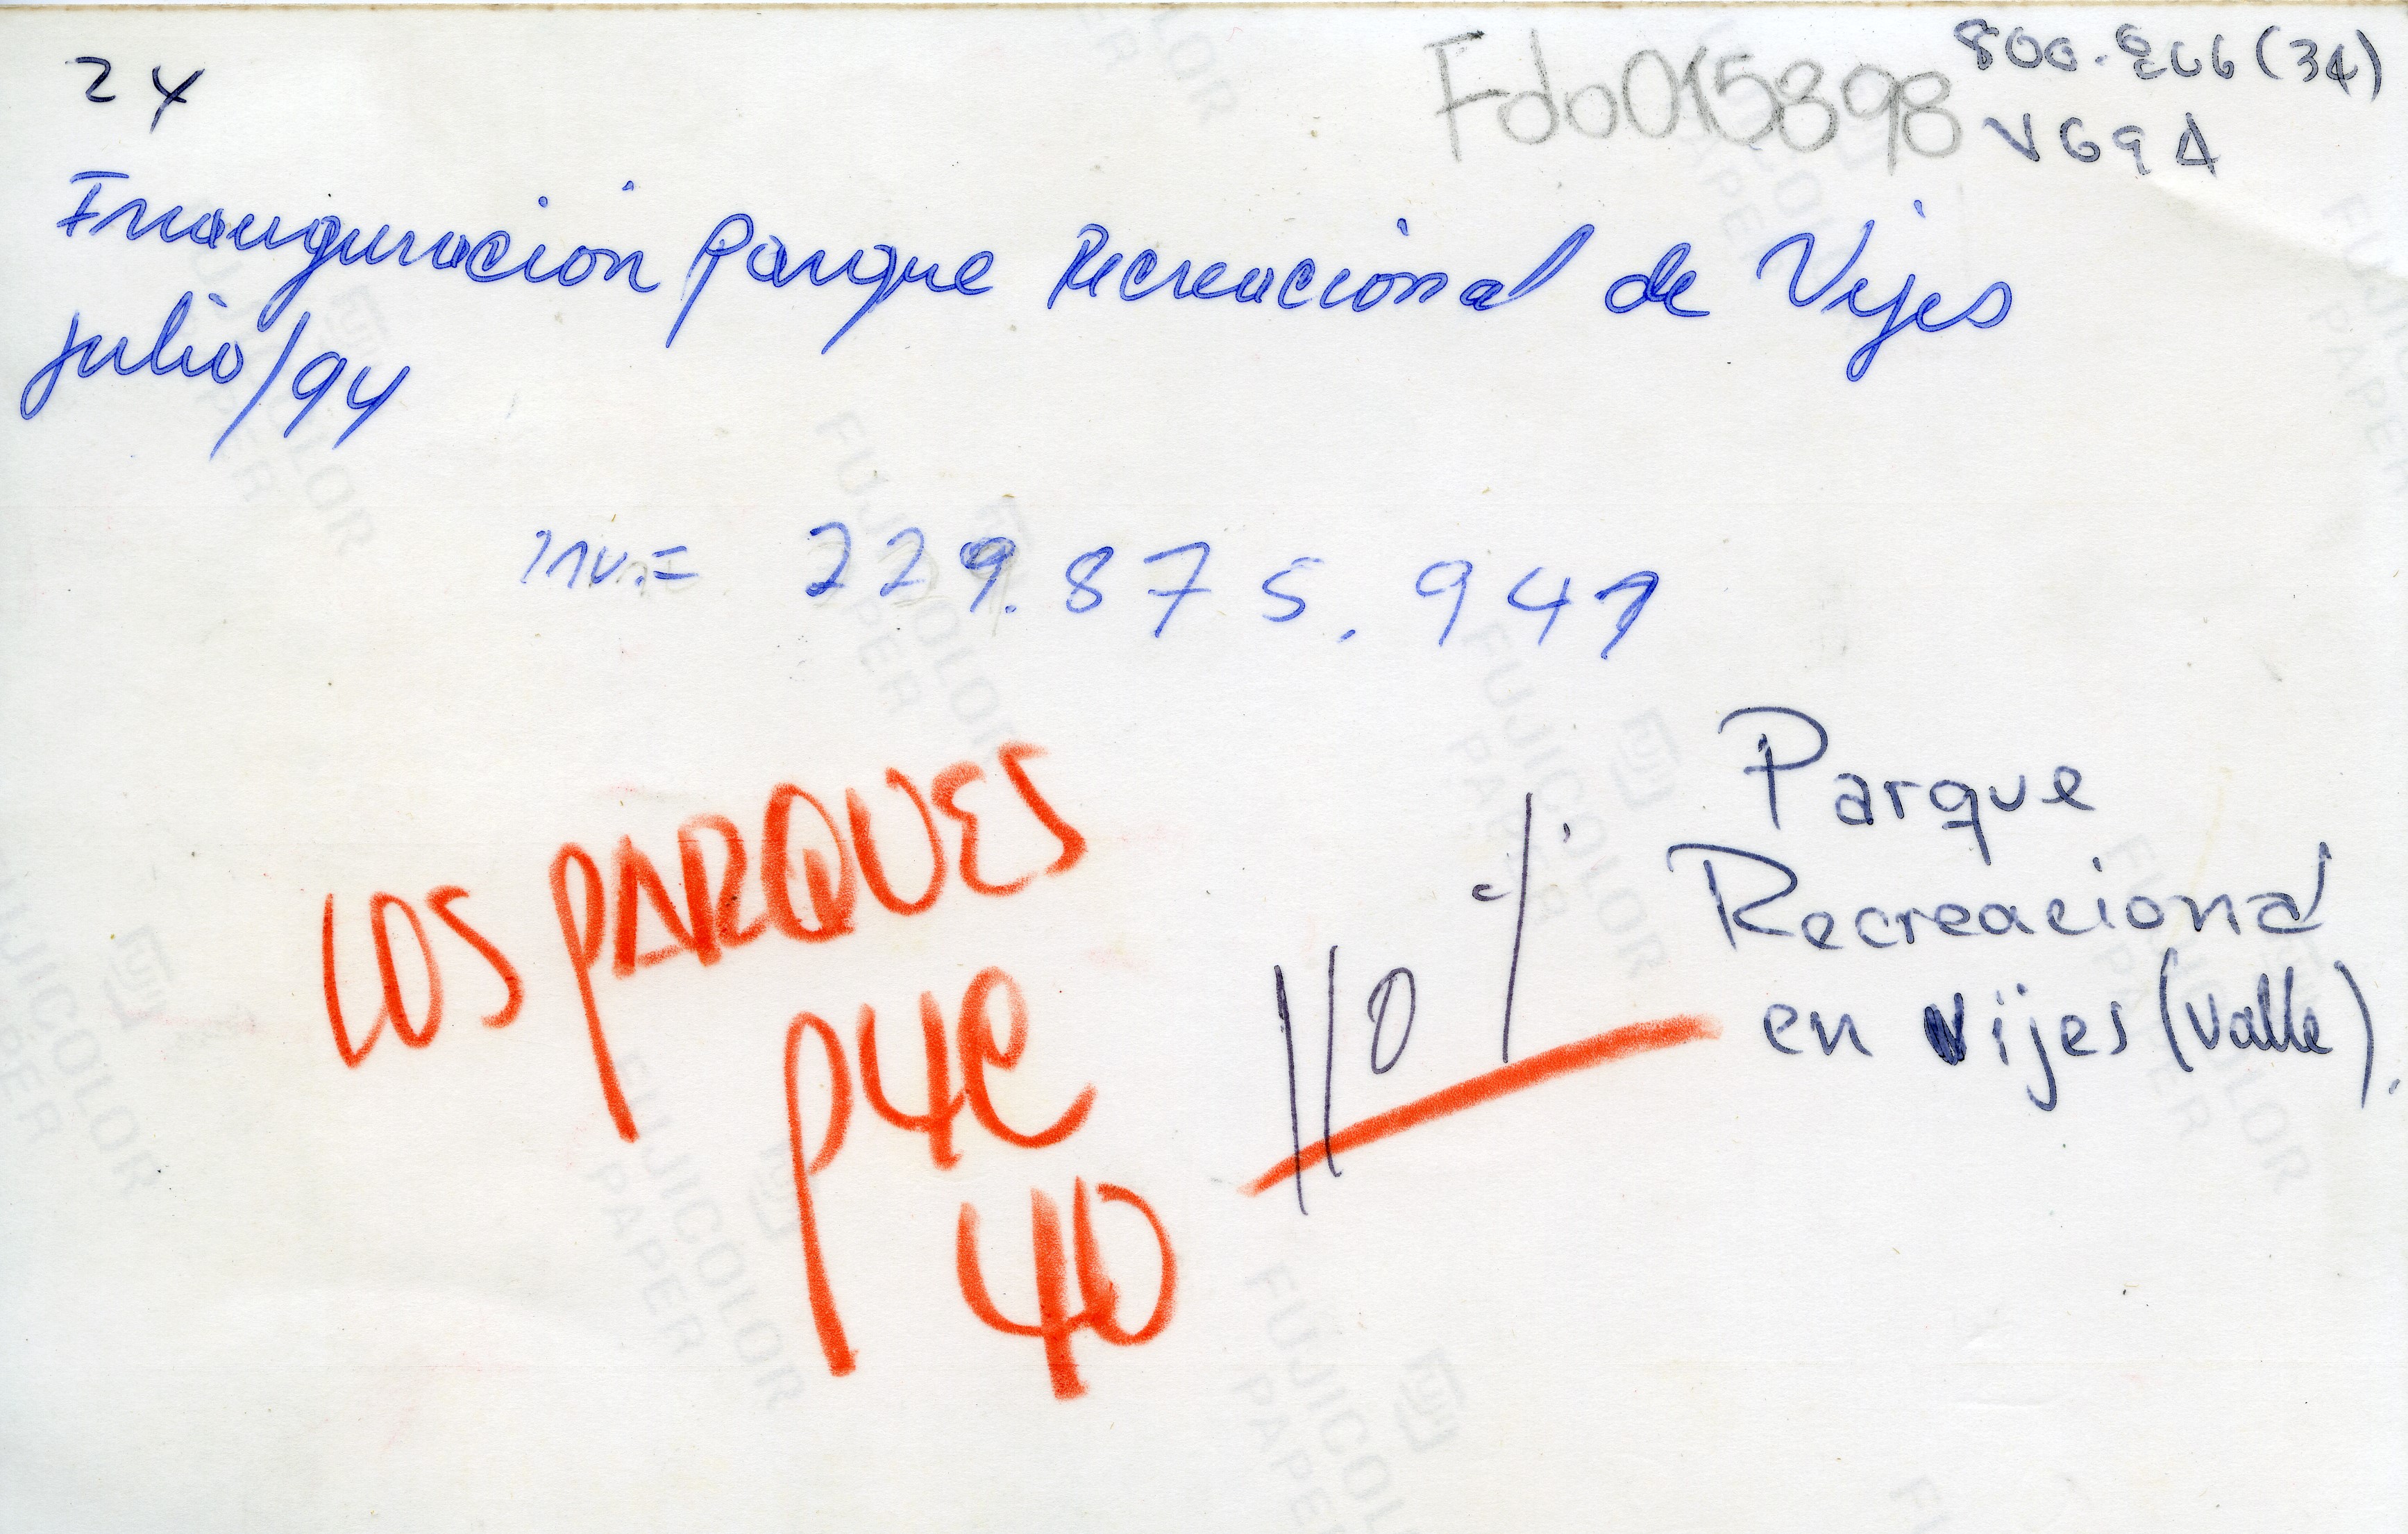 24
Fdo015898
V69A
Inauguracion parque Recreacional de Vijes
julio/94
inv.= 229.875.941
LOS PARQUES
P4C
40
110%
Parque
Recreacional
en Vijes (Valle).
FUJICOLOR
PAPER